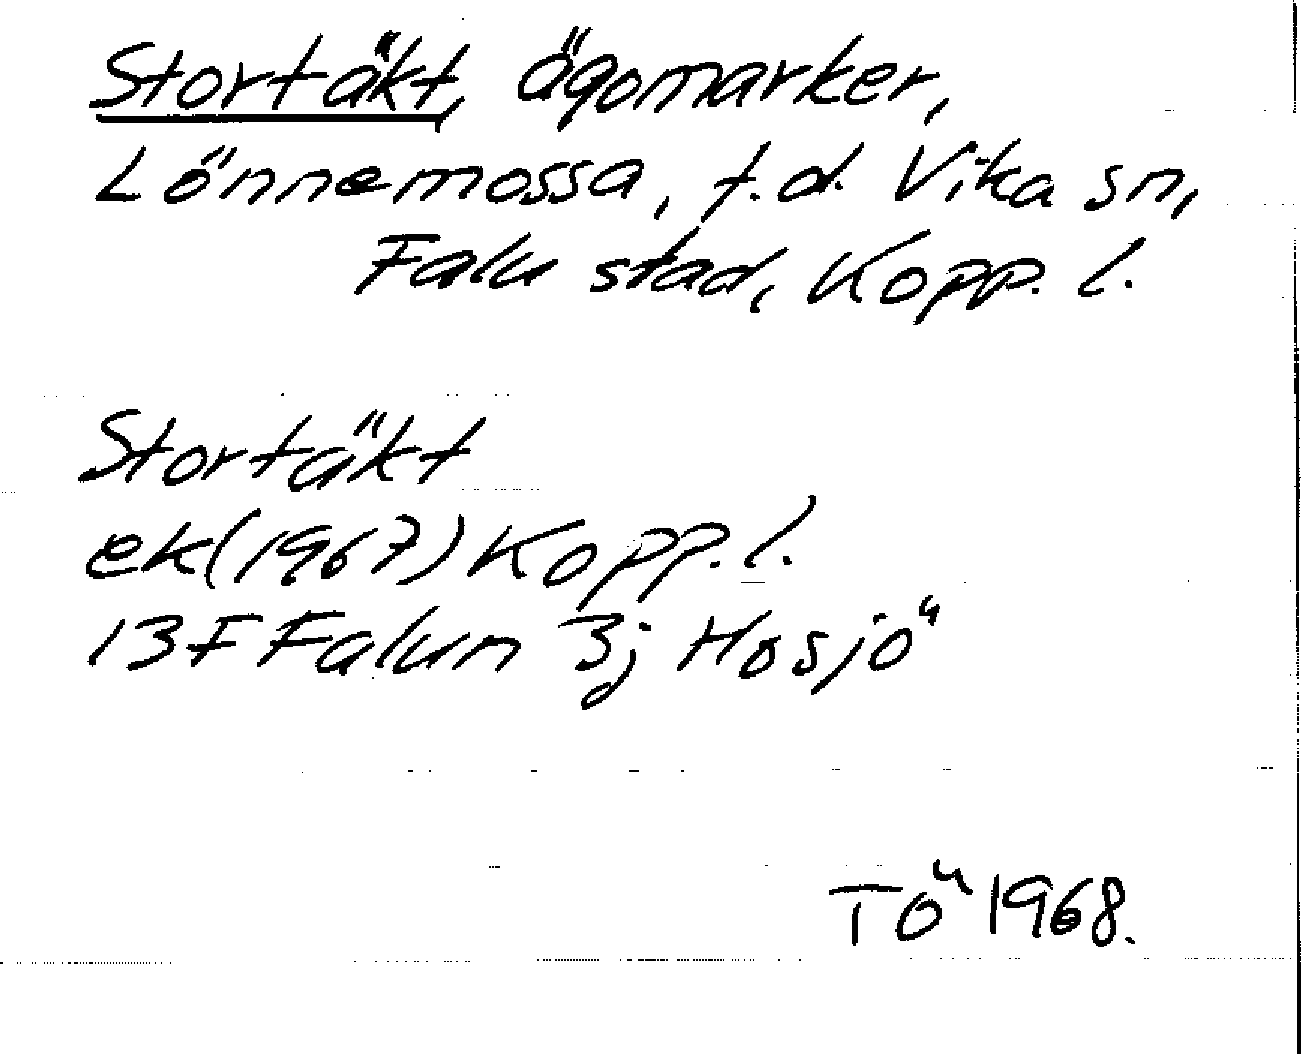 Stortäkt, ägomarker,
Lönnemossa, f.d. Vika sn,
Falu stad, Kopp. l.
Stortäkt
ek(1967) Kopp. l.
13F Falun 3j Hosjö
TÖ 1968.